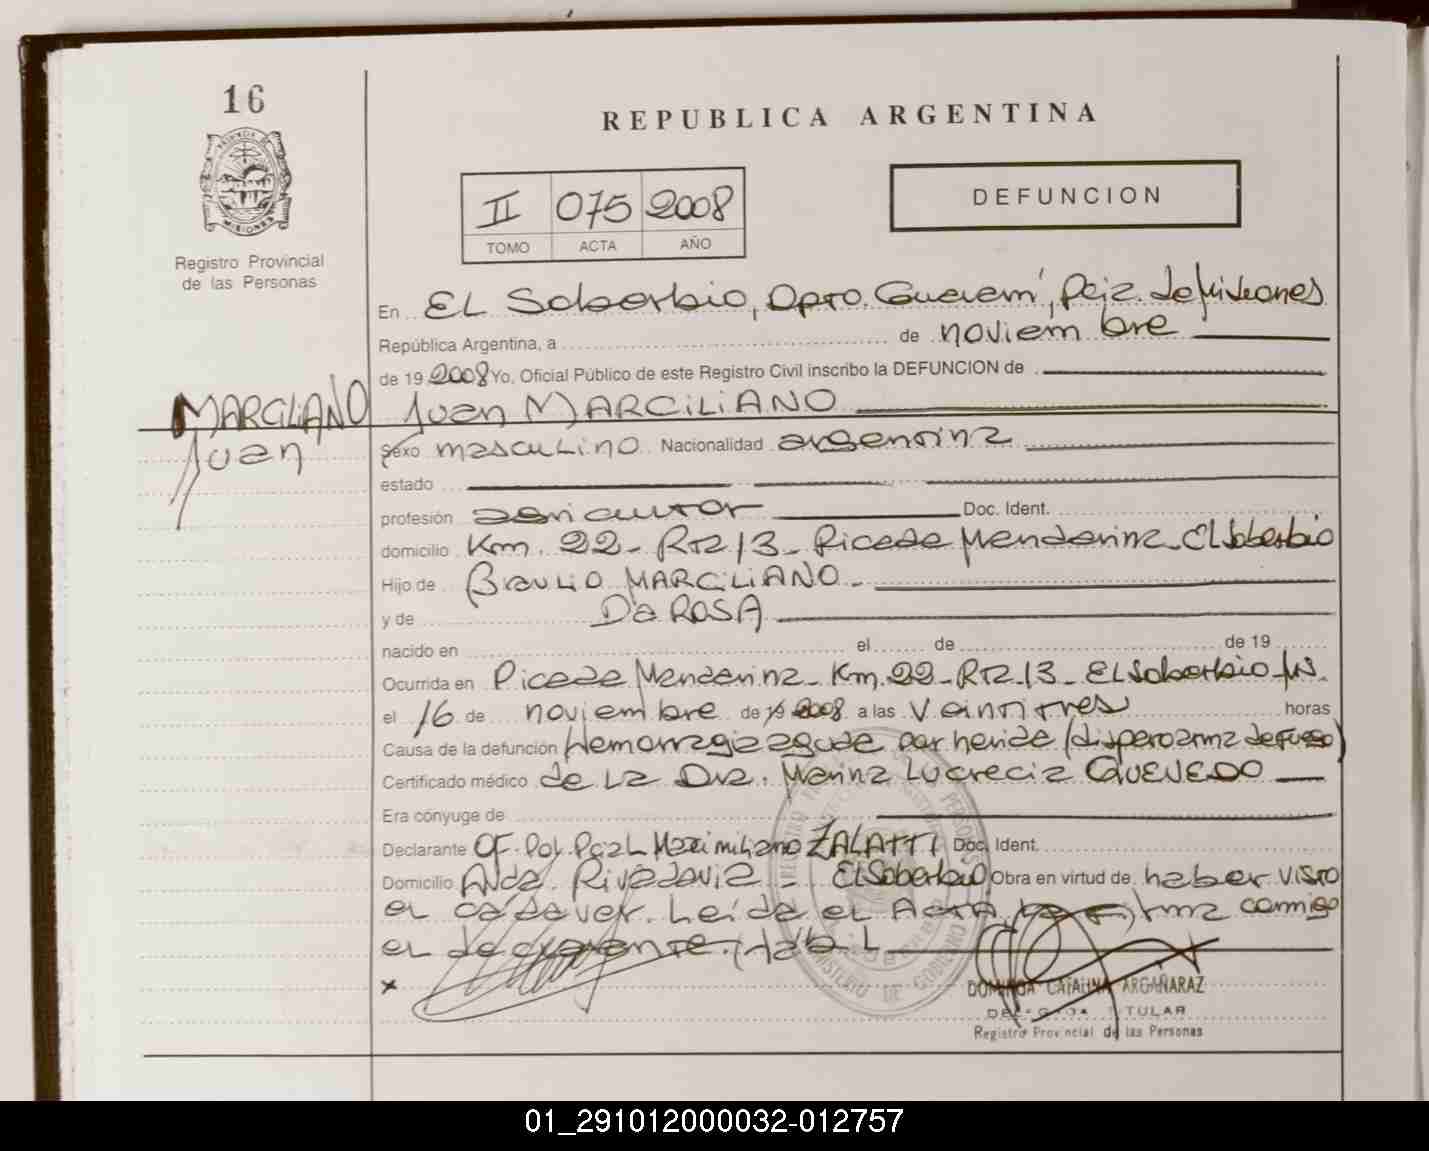 16
REPUBLICA ARGENTINA
II 075 2008
TOMO ACTA AÑO
DEFUNCION
Registro Provincial
de las Personas
En EL Soberbio, Dpto. Guaraní, Pcia. de Misiones
República Argentina, a de noviembre
de 19 2008 Yo, Oficial Público de este Registro Civil inscribo la DEFUNCION de
MARCILIANO Juan MARCILIANO
Juan
sexo masculino Nacionalidad argentina
estado
profesión agricultor Doc. Ident.
domicilio Km. 22 - RP 13 - Picada Mandarina - El Soberbio
Hijo de Braulio MARCILIANO -
y de Da ROSA
nacido en el de de 19
Ocurrida en Picada Mandarina - Km. 22 - 13 - El Soberbio
el 16 de noviembre de 19 2008 a las veintitres horas
Causa de la defunción Hemorragia aguda por herida (disparo arma de fuego)
Certificado médico de La Dra. Marina Lucrecia QUEVEDO
Era cónyuge de
Declarante OF. Pol. Pcial Maximiliano ZALATTI Doc. Ident.
Domicilio Avda. Rivadavia - El Soberbio Obra en virtud de haber visto
el cadaver. Leída el Acta, firma conmigo
el declarante.
x
DOMINGA CATALINA ARGAÑARAZ
DELEGADA TITULAR
Registro Provincial de las Personas
01_291012000032-012757